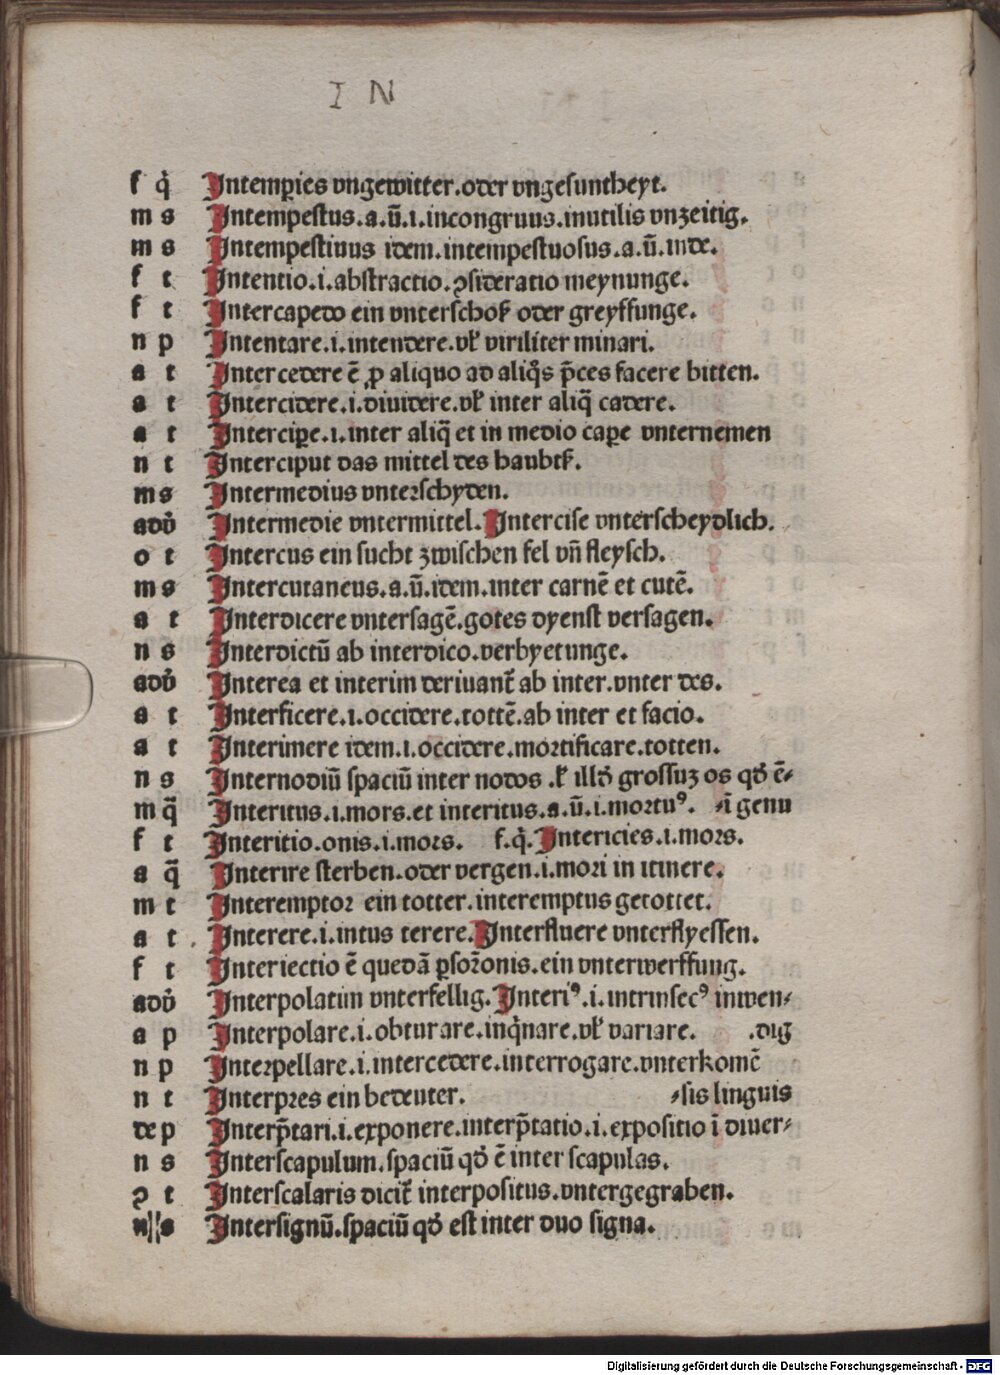 I N
f q̇ Intemꝑies vngewitter.oder vngesuntheyt.
m s Intempestus.a.ū.i.incongruus.inutilis vnzeitig.
m s Intempestiuus idem.intempestuosus.a.ū.inde.
f t Intentio.i.abstractio.ꝯsideratio meynunge.
f t Intercapedo ein vnterschoꝭ oder greyffunge.
n p Intentare.i.intendere.vꝉ viriliter minari.
a t Intercedere ē ꝓ aliquo ad aliq̇s p̄ces facere bitten.
a t Intercidere.i.diuidere.vꝉ inter aliq̄ cadere.
a t Interciꝑe.i.inter aliq̄ et in medio caꝑe vnternemen
n t Interciput das mittel des haubtꝭ.
m s Intermedius vnterschyden.
adv̇ Intermedie vntermittel.Intercise vnterscheydlich.
o t Intercus ein sucht zwischen fel vn̄ fleysch.
m s Intercutaneus.a.ū.idem.inter carnē et cutē.
a t Interdicere vntersagē.gotes dyenst versagen.
n s Interdictū ab interdico.verbyetunge.
adv̇ Interea et interim deriuant᷑ ab inter.vnter des.
a t Interficere.i.occidere.tottē.ab inter et facio.
a t Interimere idem.i.occidere.mortificare.totten.
n s Internodiū spaciū inter nodos .ꝉ illd̓ grossuꝫ os qd̓ ē⸗
m q̄ Interitus.i.mors.et interitus.a.ū.i.mortuꝰ. ⸗ī genu
f t Interitio.onis.i.mors. f.q̇.Intericies.i.mors.
a q̄ Interire sterben.oder vergen.i.mori in itinere.
m t Interemptor ein totter.interemptus getottet.
a t . Interere.i.intus terere.Interfluere vnterflyessen.
f t Interiectio ē quedā ꝑsor̄onis.ein vnterwerffung.
adv̇ Interpolatim vnterfellig.Interiꝰ.i.intrinsecꝰ inwen⸗
a p Interpolare.i.obturare.inq̇nare.vꝉ variare. .dig
n p Interpellare.i.intercedere.interrogare.vnterkomē
n t Interpres ein bedeuter. ⸗sis linguis
de p Interp̄tari.i.exponere.interp̄tatio.i.expositio ī diuer⸗
n s Interscapulum.spaciū qd̓ ē inter scapulas.
ꝯ t Interscalaris dicit᷑ interpositus.vntergegraben.
n s Intersignū.spaciū qd̓ est inter duo signa.
Digitalisierung gefördert durch die Deutsche Forschungsgemeinschaft - DFG